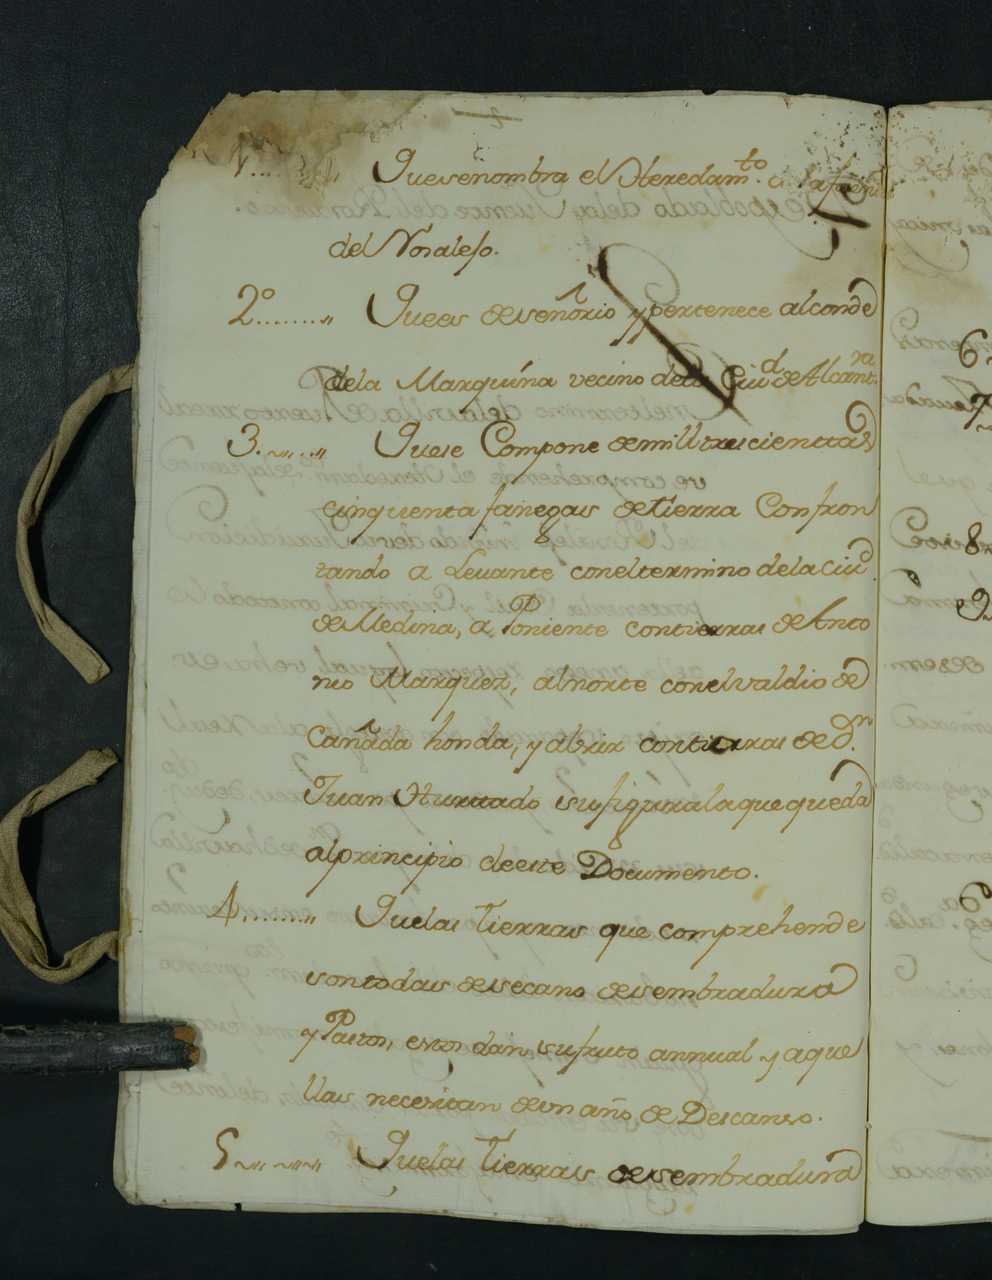 1........ Quesenombra el Heredamto. de la fuente
del Rosalejo.
2º........ Quees deseñorio y pertenece alconde
dela Marquina vecino dela Ciud. de Alcantra.
3........ Quese Compone demill trescienttas
cinquenta fanegas detierra Confron
tando a Levante coneltermino dela Ciud.
de Medina, a Poniente contierras de Anto
nio Marquez, alnorte conelvaldio de
Cañada honda, y alsur contierras de Dn.
Juan Hurtado susfigura la que queda
alprincipio deeste Documento.
4........ Quelas Tierras que comprehende
sontodas desecano desembradura
y Pastos, estos dan sufruto annual y aque
llas necesitan deun año de Descanso.
5........ Quelas Tierras desembradura
6
7
8
9